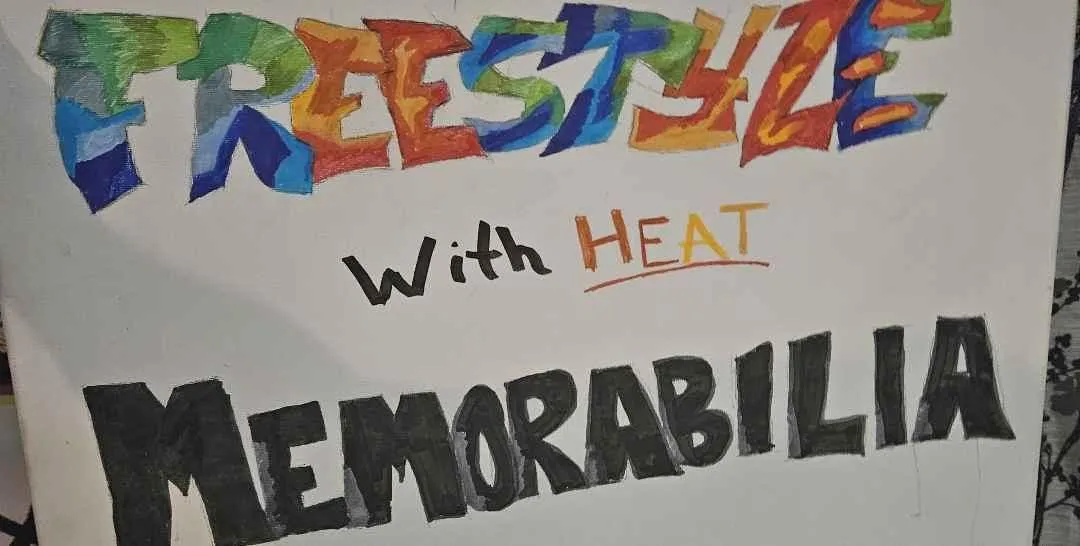 FREESTYZE
With HEAT
MEMORABILIA